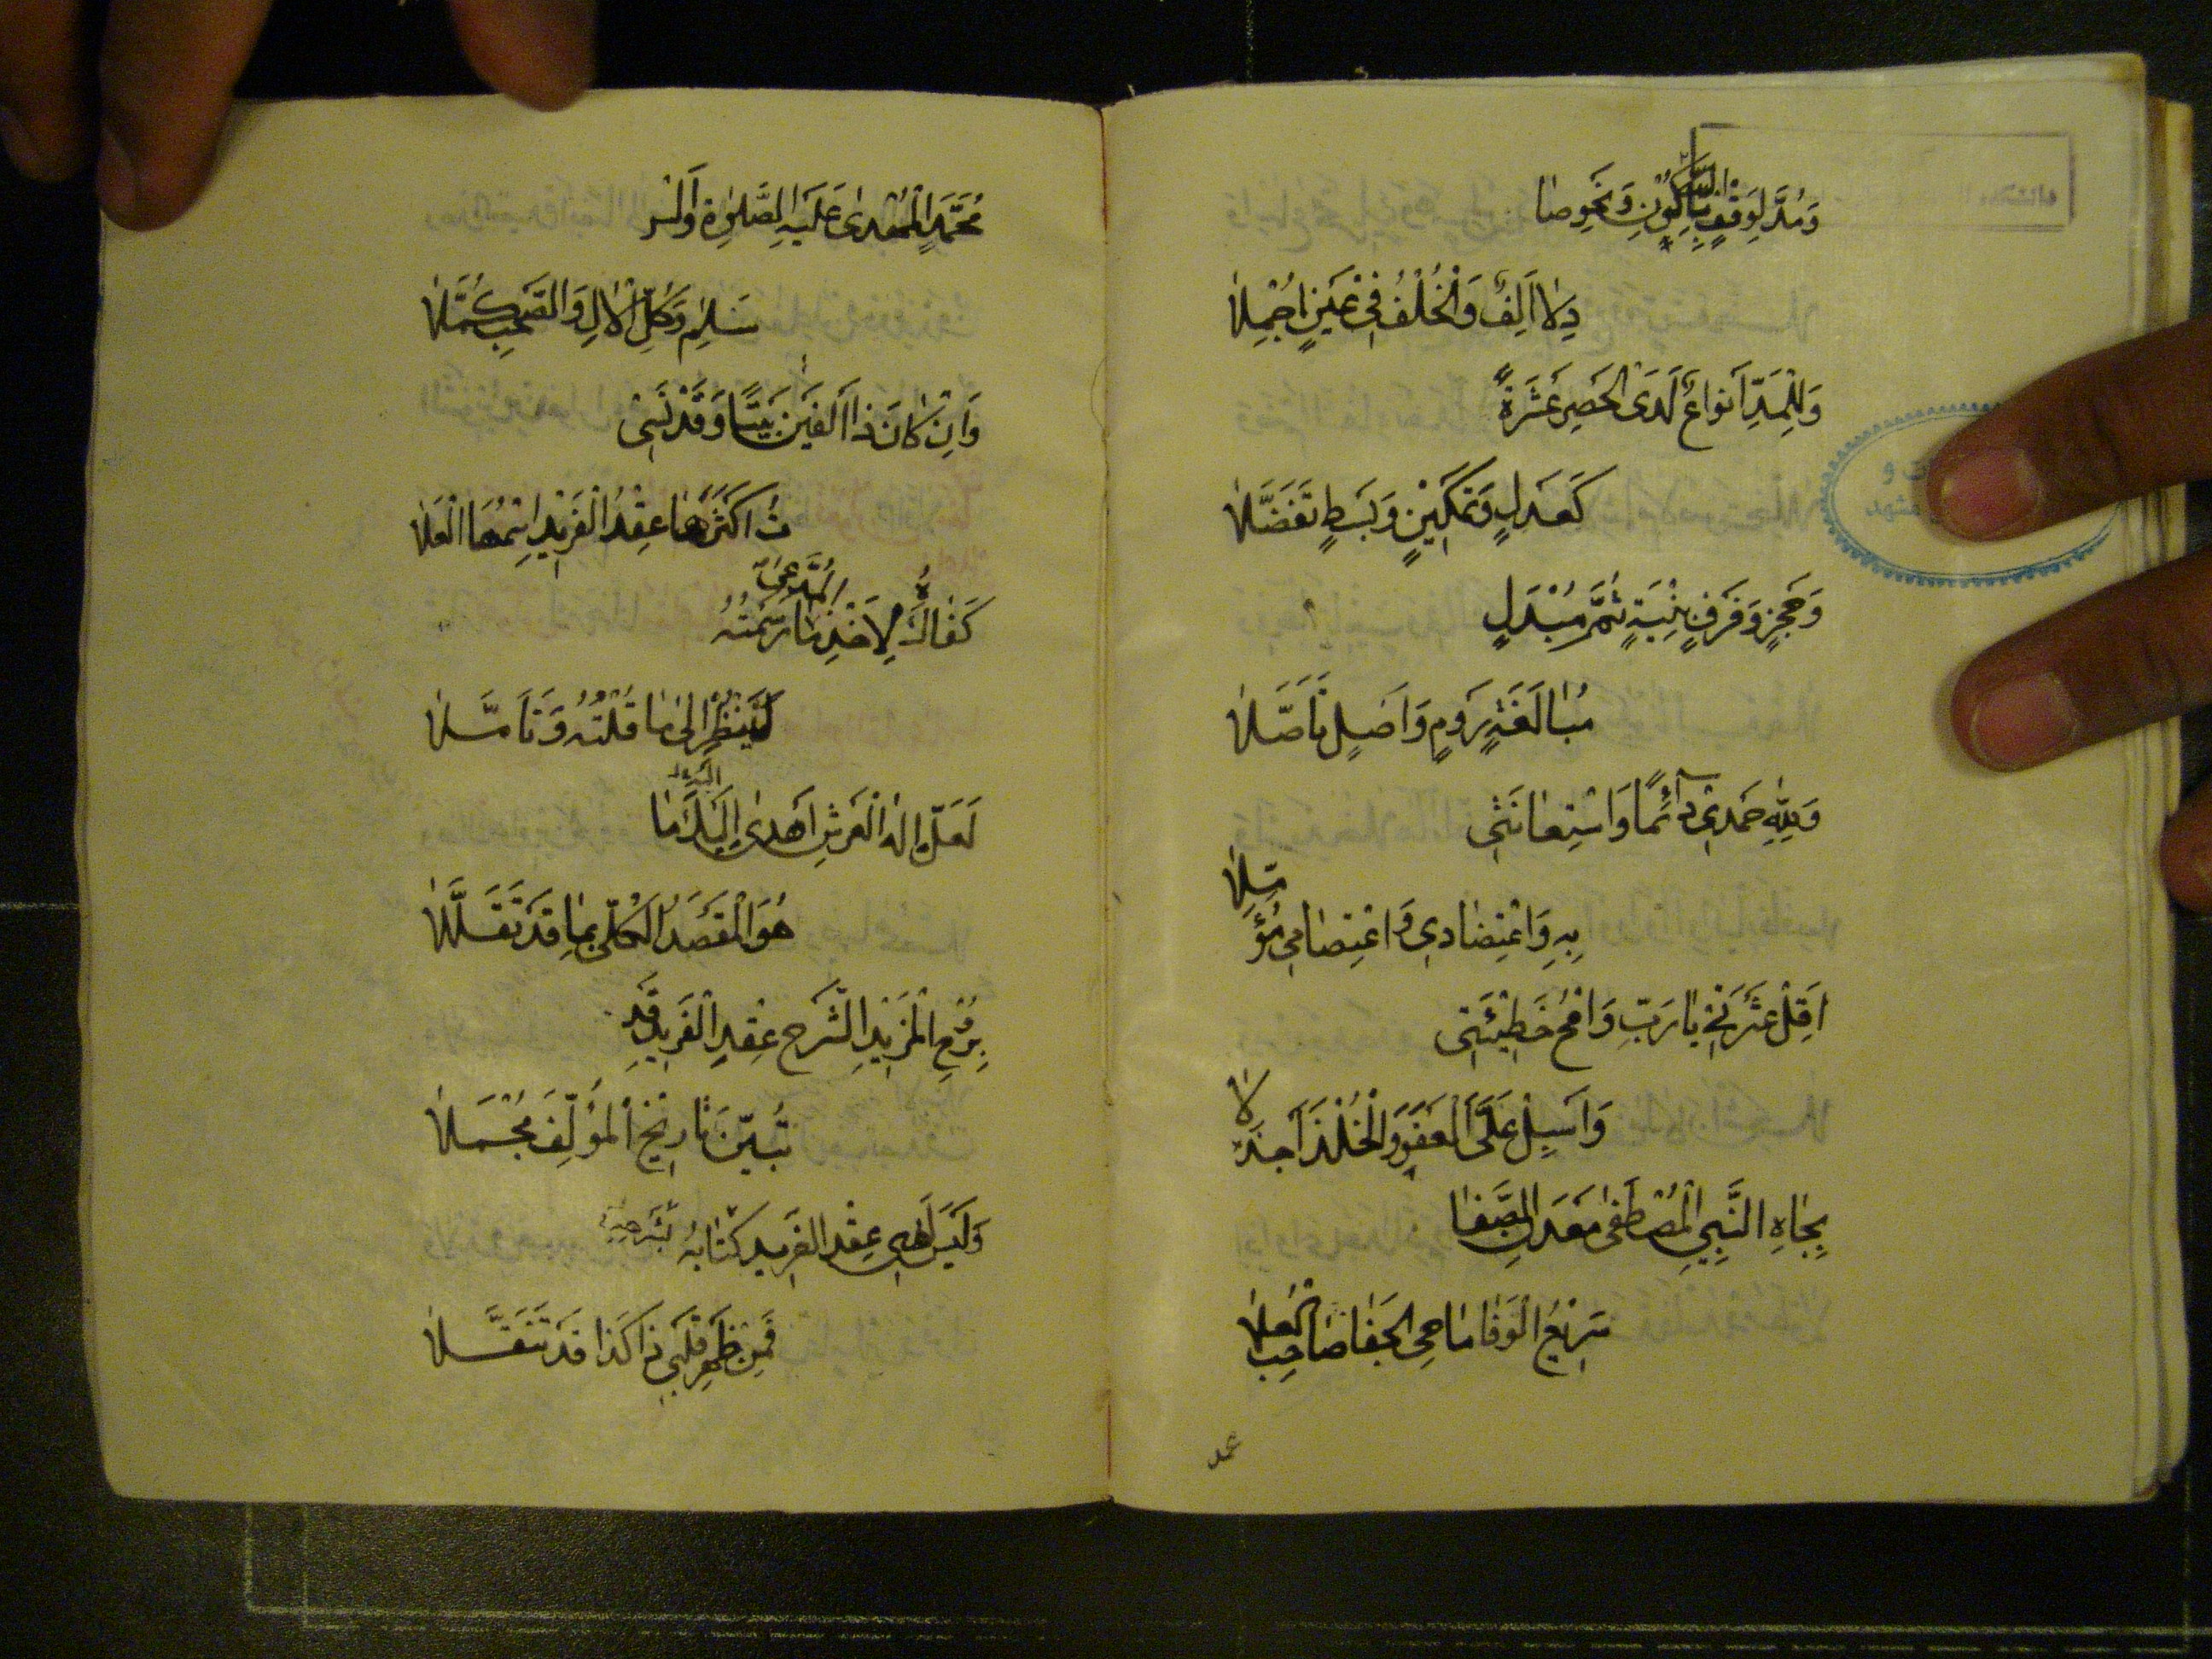 وَمُدَّ لِوَقْفٍ بِالسُّكُونِ وَنَحْوِ صَا
دِ لَا اَلِفٌ وَالْخُلْفُ فِي عَيْنٍ اُجْمِلَا
وَلِلْمَدِّ اَنْوَاعٌ لَدَى الْحَصْرِ عَشْرَةٌ
كَعَدْلٍ وَتَمْكِيْنٍ وَبَسْطٍ تَفَضَّلَا
وَحَجْزٍ وَفَرْقٍ بِنْيَةٍ ثُمَّ مُبْدَلٍ
مُبَالَغَةٍ رَوْمٍ وَاَصْلٍ تَاَصَّلَا
وَلِلّٰهِ حَمْدِيْ دَآئِمًا وَاسْتِعَانَتِي
بِهِ وَاعْتِضَادِي وَاعْتِصَامِي مُؤَمِّلَا
اَقِلْ عَثْرَتِي يَا رَبِّ وَامْحُ خَطِيْئَتِي
وَاَسْبِلْ عَلَيَّ الْعَفْوَ وَالْخُلْدَ اَجْزِلَا
بِجَاهِ النَّبِيِّ الْمُصْطَفٰى مَعْدَنِ الصَّفَا
سَرِيْعِ الْوَفَا مَاحِي الْجَفَا صَاحِبِ الْعُلَا
محمد
مُحَمَّدٍ الْمُهْدٰى عَلَيْهِ الصَّلٰوةُ وَالسْـ
سَلَامُ وَكُلِّ الْاٰلِ وَالصَّحْبِ كُمَّلَا
وَاِنْ كَانَ ذَا اَلْفَيْنِ بَيْتًا وَقَدْ نَسِيْـ
تُ اَكْثَرَهَا عِقْدُ الْفَرِيْدِ اسْمُهَا الْعَلَا
كَفَاكَ لِاَخْذِ الْمُدَّعٰى مَا رَسَمْتُهُ
لِيَنْظُرْ اِلٰى مَا قُلْتُهُ وَتَاَمَّلَا
لَعَلَّ اِلٰهَ الْعَرْشِ اَهْدٰى اِلَيْكَ مَا
هُوَ الْمَقْصَدُ الْكُلِّي بِمَا قَدْ تَقَلَّلَا
بِرُمْحِ الْمَزِيْدِ الشَّرْحِ عِقْدِ الْفَرِيْدِ قَدْ
تُبَيَّنَ تَارِيْخُ الْمُؤَلَّفِ مُجْمَلَا
وَلَيْسَ لَدَيَّ عِقْدُ الْفَرِيدِ كِتَابُهُ بِشَرْحِهِ
فَمِنْ ظَهْرِ قَلْبِي ذَا كَذَا قَدْ تَنَقَّلَا